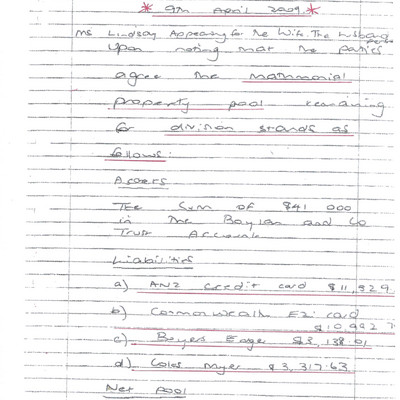 * 9th April 2009. *
Ms Lindsay Appearing for the Wife. The Husband
Upon noting that the parties
agree the matrimonial
property pool remaining
for division stands as
follows:
Assets
The sum of $41 000
in the Baylan and Co
Trust Account
Liabilities
a) ANZ credit card $11,929
b) Commonwealth EZi card
$10,992.7
c) Buyers Edge $3,138.01
d) Coles Myer $3,317.63
Net Pool